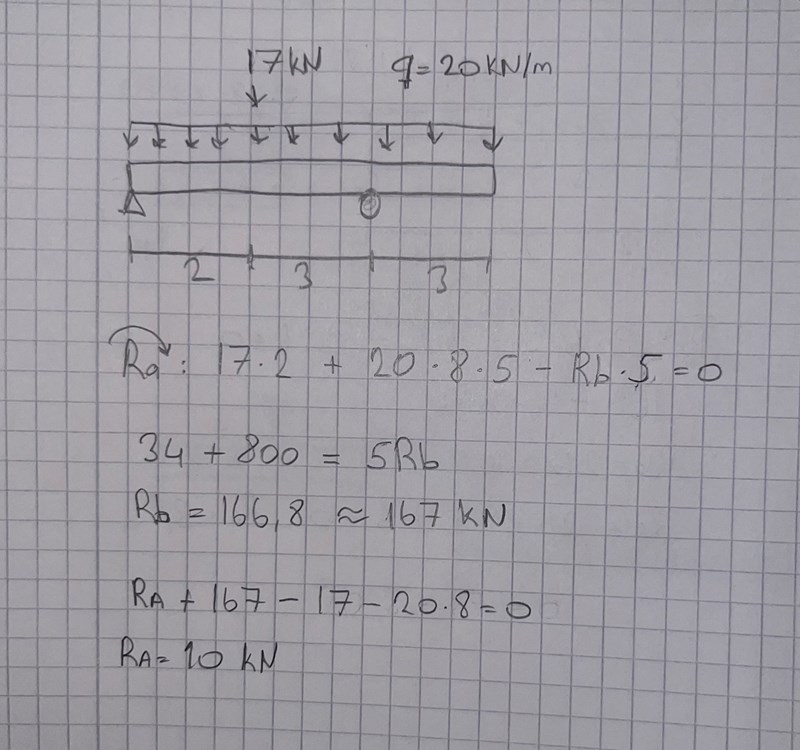 17kN q=20KN/m
2 3 3
Ra: 17·2 + 20·8·5 - Rb·5 = 0
34 + 800 = 5Rb
Rb = 166,8 ≈ 167 KN
RA + 167 - 17 - 20·8 = 0
RA = 10 KN